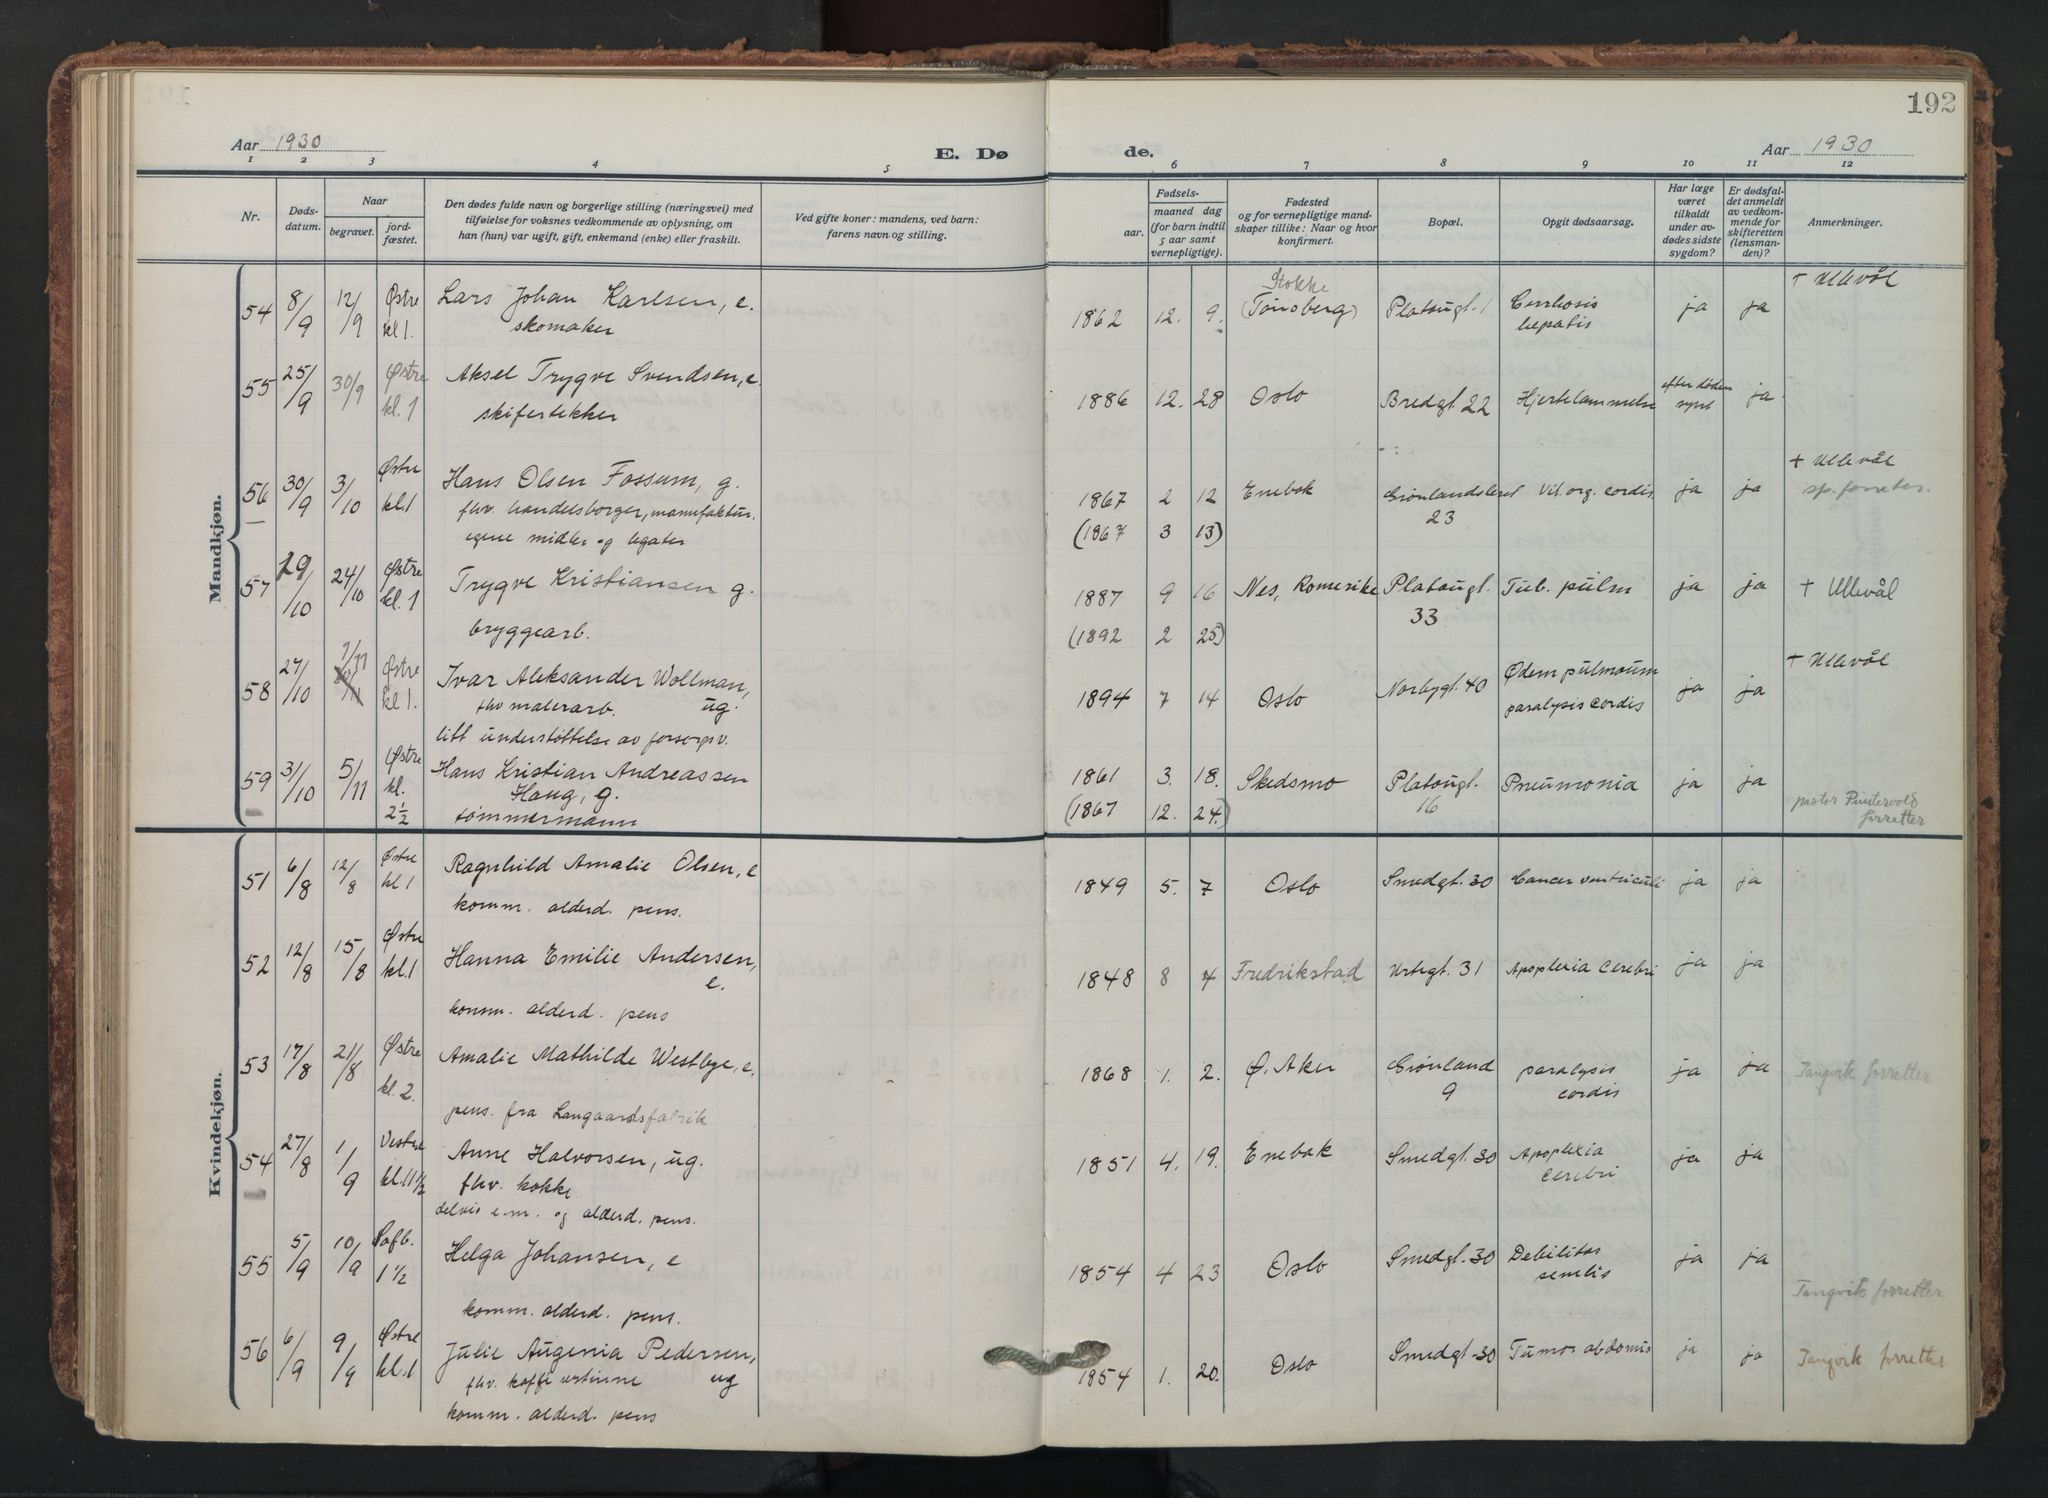 192
Aar 1930
E. Dø
de.
Aar 1930
1 2 3 4 5 6 7 8 9 10 11 12
Nr.
Døds-
datum.
Naar
begravet.
jord-
fæstet.
Den dødes fulde navn og borgerlige stilling (næringsvei) med
tilføielse for voksnes vedkommende av oplysning, om
han (hun) var ugift, gift, enkemand (enke) eller fraskilt.
Ved gifte koner: mandens, ved barn:
farens navn og stilling.
Fødsels-
aar.
maaned dag
(for barn indtil
5 aar samt
vernepligtige).
Fødested
og for vernepligtige mand-
skaper tillike: Naar og hvor
konfirmert.
Bopæl.
Opgit dødsaarsag.
Har læge
været
tilkaldt
under av-
dødes sidste
sygdom?
Er dødsfal-
det anmeldt
av vedkom-
mende for
skifteretten
(lensman-
den)?
Anmerkninger.
Mandkjøn.
54 8/9 12/9 Østre kl 1. Lars Johan Karlsen, e. 1862 12. 9. Stokke (Tønsberg) Platougt. 1 Cerrhosis ja ja + Ullevål
skomaker hepatis
55 25/9 30/9 Østre kl. 1 Aksel Trygve Svendsen, e. 1886 12. 28 Oslo Bredgt. 22 Hjertelammelse efter døden synt ja
skifertekker
56 30/9 3/10 Østre kl 1 Hans Olsen Fossum, g. 1867 2 12 Enebak Grønlandsleret 23 Vit. org. cordis ja ja + Ullevål
fhv. handelsborger, manufaktur. (1867 3 13)
egne midler og legater
57 19/10 24/10 Østre kl. 1 Trygve Kristiansen g. 1887 9 16 Nes, Romerike Platougt. 33 Tub. pulm ja ja + Ullevål
bryggearb. (1892 2 25)
58 27/10 7/11 Østre kl 1. Ivar Aleksander Wollman, 1894 7 14 Oslo Norbygt. 40 Ødem pulmoum ja ja + Ullevål
fhv malerarb. ug. paralysis cordis
litt understøttelse av forsorgsv.
59 31/10 5/11 Østre kl. 2 1/2 Hans Kristian Andreassen 1861 3. 18. Skedsmo Platougt. 16 Pneumonia ja ja
Haug, g. (1867 12. 24.) pastor forretter
tømmermann
Kvindekjøn.
51 6/8 12/8 Østre kl 1 Ragnhild Amalie Olsen, e 1849 5. 7 Oslo Smedgt. 30 Cancer ventriculi ja ja
komm. alderd. pens.
52 12/8 15/8 Østre kl. 1 Hanna Emilie Andersen, 1848 8 4 Fredrikstad Urtegt. 31 Apoplexia Cerebri ja ja
e.
komm. alderd. pens
53 17/8 21/8 Østre kl. 2. Amalie Mathilde Westbye, e. 1868 1. 2. Ø. Aker Grønland 9 paralysis cordis ja ja Tangvik forretter
pens. fra Langaardsfabrik
54 27/8 1/9 Vestre kl. 11 1/2 Anne Halvorsen, ug. 1851 4. 19. Enebak Smedgt. 30 Apoplexia Cerebri ja ja
fhv. kokke
delvis e.m. og alderd. pens.
55 5/9 10/9 Sofb. 1 1/2 Helga Johansen, e 1854 4 23 Oslo Smedgt. 30 Debilitas senilis ja ja Tangvik forretter
komm. alderd. pens.
56 6/9 9/9 Østre kl. 1 Julie Augenia Pedersen, 1854 1. 20. Oslo Smedgt. 30 Tumor abdomis ja ja Tangvik forretter
fhv. kaffevertinne ug
komm. alderd. pens